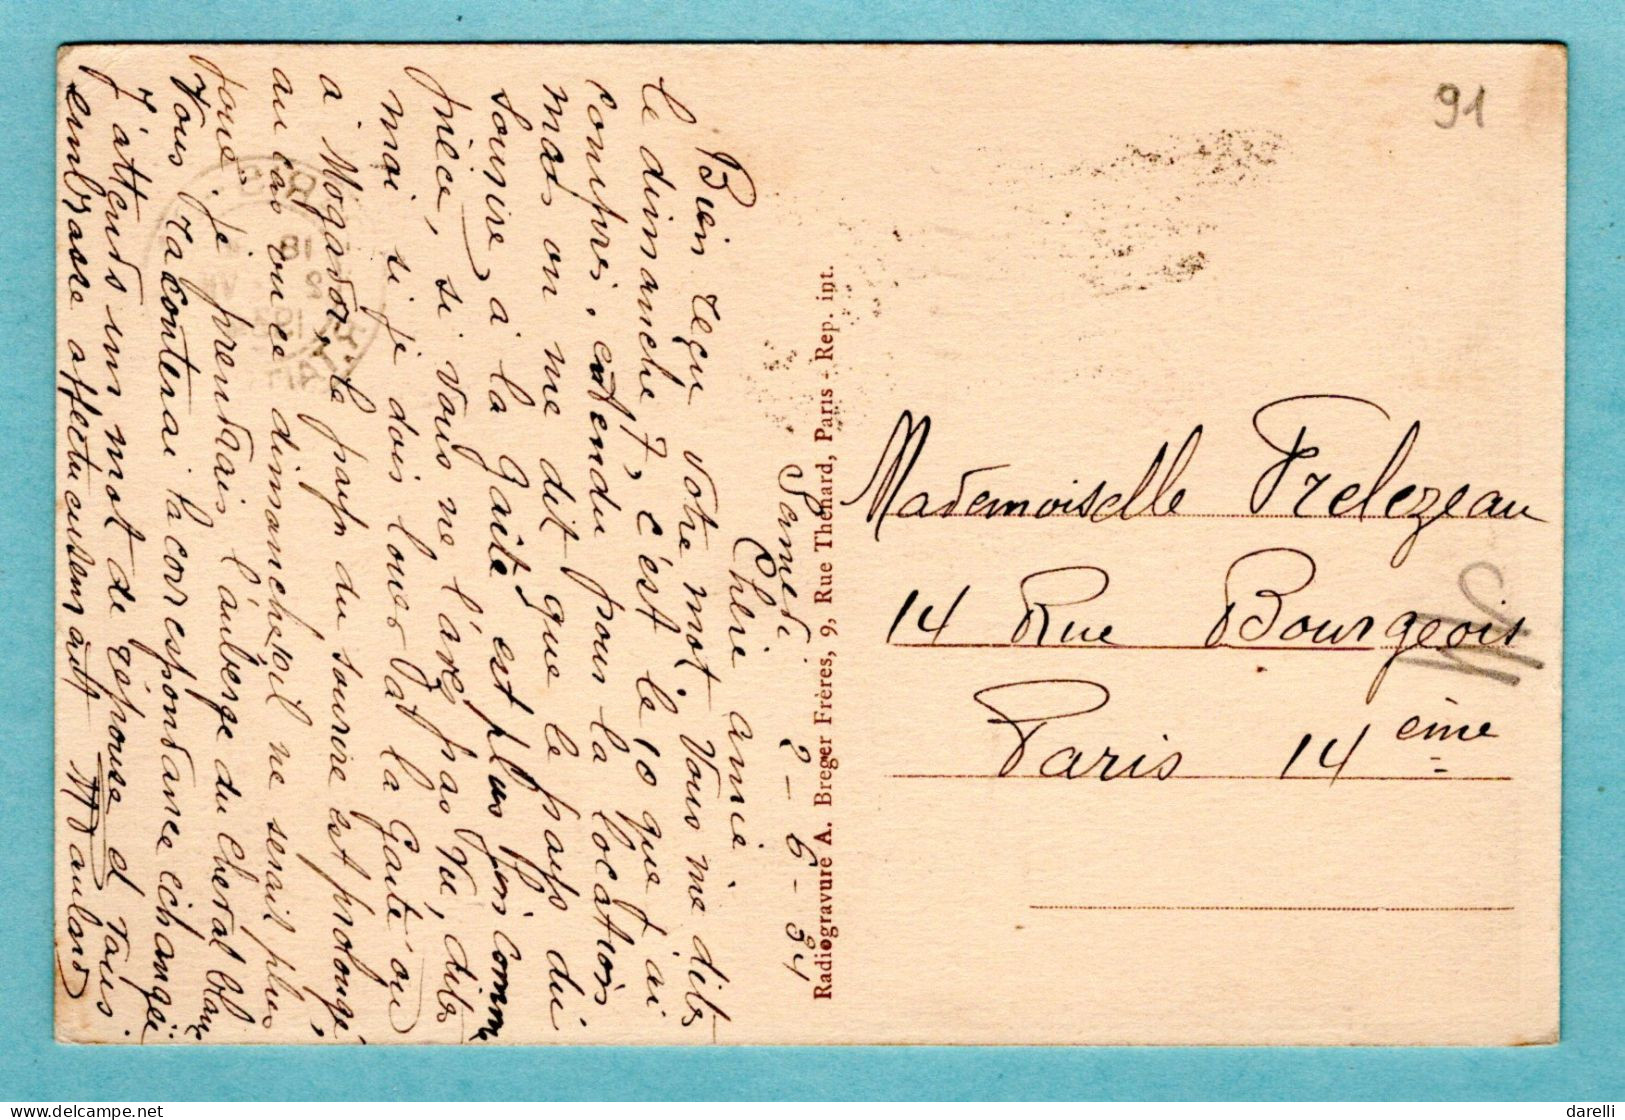 Samedi 2 - 6 - 34
Chère amie
Bien reçu votre mot. Vous me dites
le dimanche 7, c'est le 10 que j'ai
compris, entendu pour la location
mais on me dit que le pays du
Sourire, à la Gaité est plus fin comme
pièce, si vous ne l'avez pas vu, dites
moi si je dois louer à la Gaité ou
à Mogador, le pays du sourire est prolongé,
au cas où ce dimanche il ne serait plus
joué, je prendrais l'auberge du cheval blanc
Vous racontera la correspondance échangée
J'attends un mot de épouse et vous
embrasse affectueusement
Radiogravure A. Breger Frères, 9, Rue Thénard, Paris - Rep. int.
91
Mademoiselle Frelezeau
14 Rue Bourgeois
Paris 14 ème
darelli © www.delcampe.net